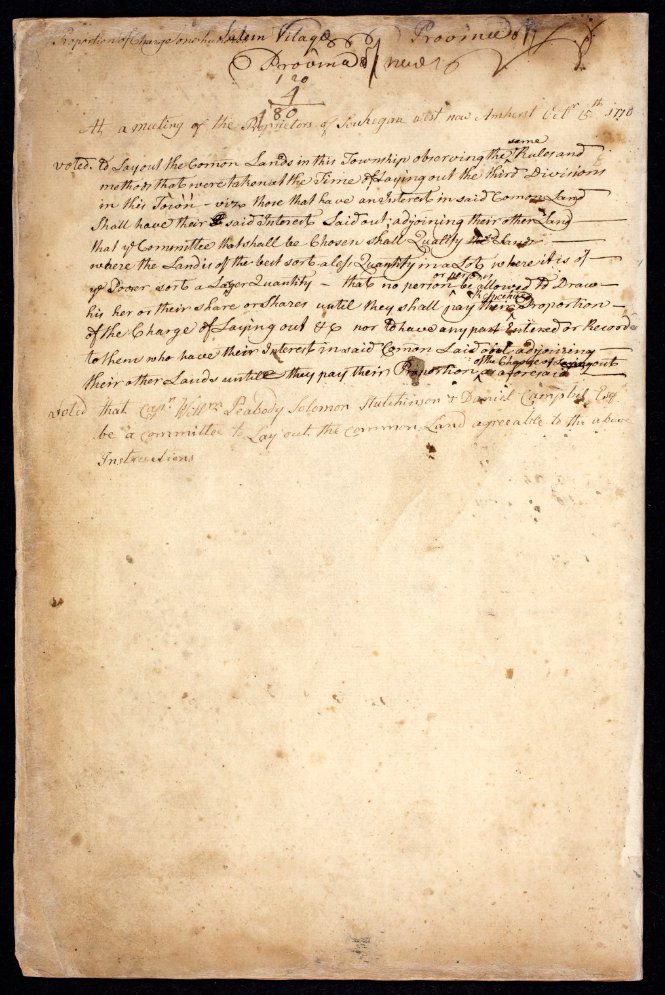 Proportion of Charge
Vilage Province
Province
120
4
180
At a meeting of the Proprietors of Souhegan west now Amherst Octbr 15th 1770
voted. to Lay out the Comon Lands in this Township observing the same Rules and
methods that were taken at the Time of Laying out the third Divisions
in this Town - viz those that have an Interest in said Comon Land
Shall have their said Interest Laid out adjoining their other Land
that ye Committee that shall be Chosen shall Qualify
where the Land is of the best sort a less Quantity in a Lot, where it is of
ye Poorer sort a Larger Quantity - that no person or persons be allowed to Draw
his her or their share or Shares until they shall pay their Proportion
of the Charge of Laying out &c nor to have any part Entered or Recorded
to them who have their Interest in said Comon Laid out adjoining
their other Lands untill they pay their Proportion of the Charge of Laying out as aforesaid
Voted that Capn Willm Peabody Solomon Hutchinson & Daniel Campbel Esq.
be a Committee to Lay out the Common Land agreable to the above
Instructions